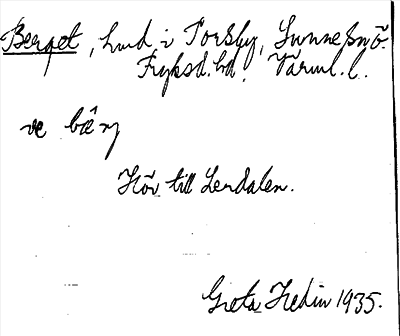 Berget, hmd i Torsby, Sunne snö.
Fryksd. hd. Värml. l.
ve bæ̂ɳ
Hör till Lerdalen.
Greta Hedin 1935.